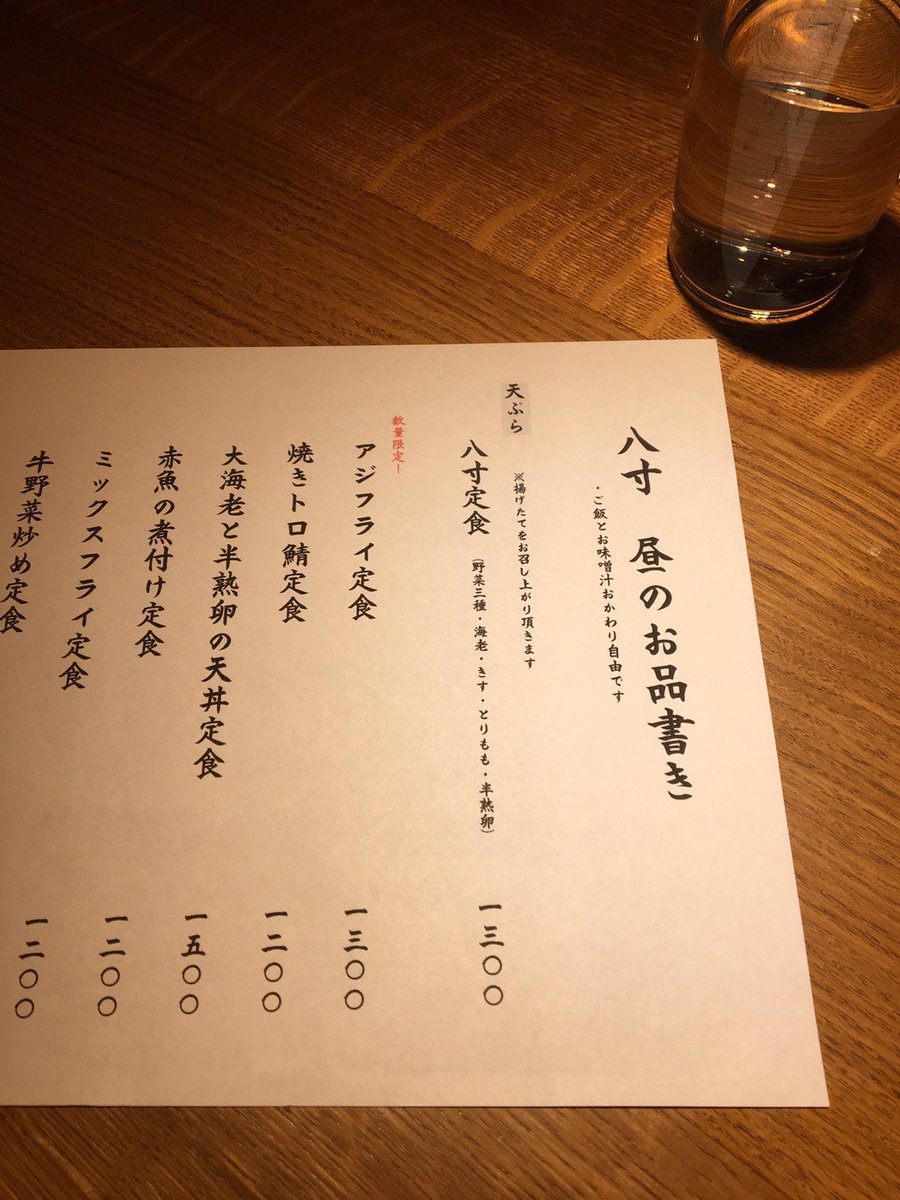 八寸 昼のお品書き
・ご飯とお味噌汁おかわり自由です
天ぷら
※揚げたてをお召し上がり頂きます
八寸定食 （野菜三種・海老・きす・とりもも・半熟卵） 一三〇〇
数量限定ー
アジフライ定食 一三〇〇
焼きトロ鯖定食 一二〇〇
大海老と半熟卵の天丼定食 一五〇〇
赤魚の煮付け定食 一二〇〇
ミックスフライ定食 一二〇〇
牛野菜炒め定食